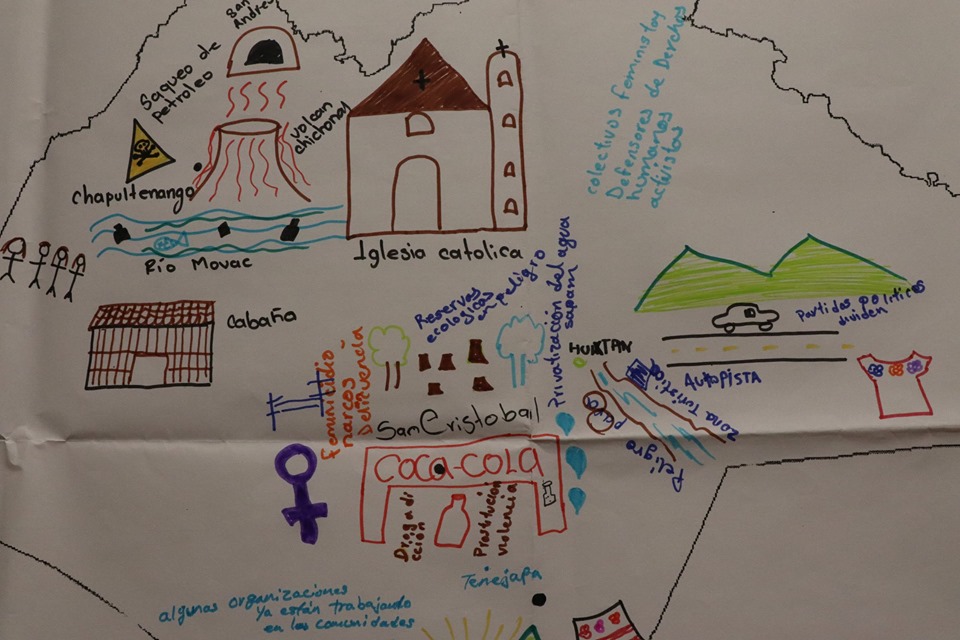 San
Andres
Saqueo de
petroleo
volcan
chichonal
Chapultenango
Río Movac
Iglesia catolica
colectivos feministas y
Defensores de Derechos
humanos
activistas
Cabaña
Reservas
ecologicas
en peligro
Privatización del agua
sapam
Feminicidio
narcos
Delicuencia
HUIXTAN
Partidos politicos
dividen
AUTOPISTA
zona turistica
Peligro
San Cristobal
COCA-COLA
Drogadi
cción
Prostitución
violencia
Tenejapa
algunas organizaciones
ya están trabajando
en las comunidades